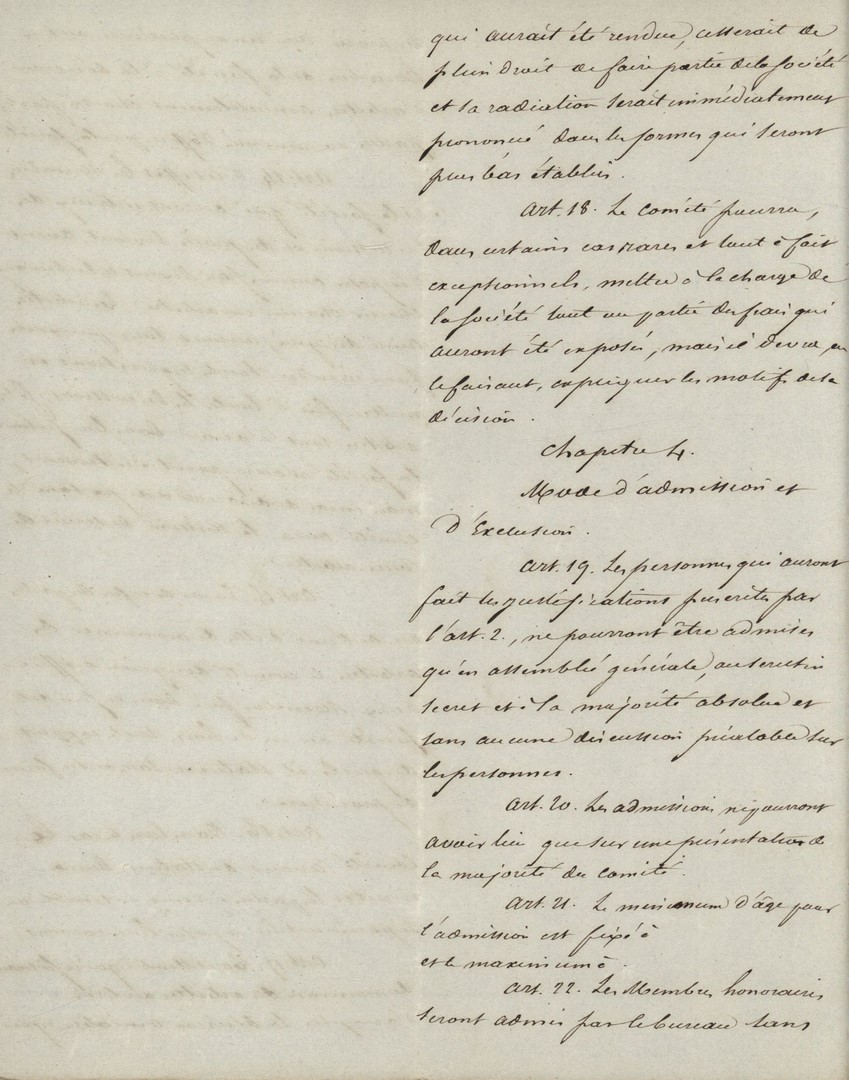 qui aurait été rendue, cesserait de
plein droit de faire partie de la Société
et sa radiation serait immédiatement
prononcé dans les formes qui seront
plus bas établies.
Art. 18. Le comité pourra,
dans certains cas rares et tout à fait
exceptionnels, mettre à la charge de
la Société tout ou partie des frais qui
auront été exposés, mais il devra, en
le faisant, expliquer les motifs de sa
décision.
Chapitre 4.
Mode d'admission et
d'Exclusion.
Art. 19. Les personnes qui auront
fait les justifications prescrites par
l'art. 2., ne pourront être admises
qu'en assemblée générale, au scrutin
secret et à la majorité absolue et
sans aucune discussion préalable sur
les personnes.
Art. 20. Les admissions ne pourront
avoir lieu que sur une présentation de
la majorité du comité.
Art. 21. Le minimum d'âge pour
l'admission est fixé à
et le maximum à .
Art. 22. Les Membres honoraires
seront admis par le bureau sans